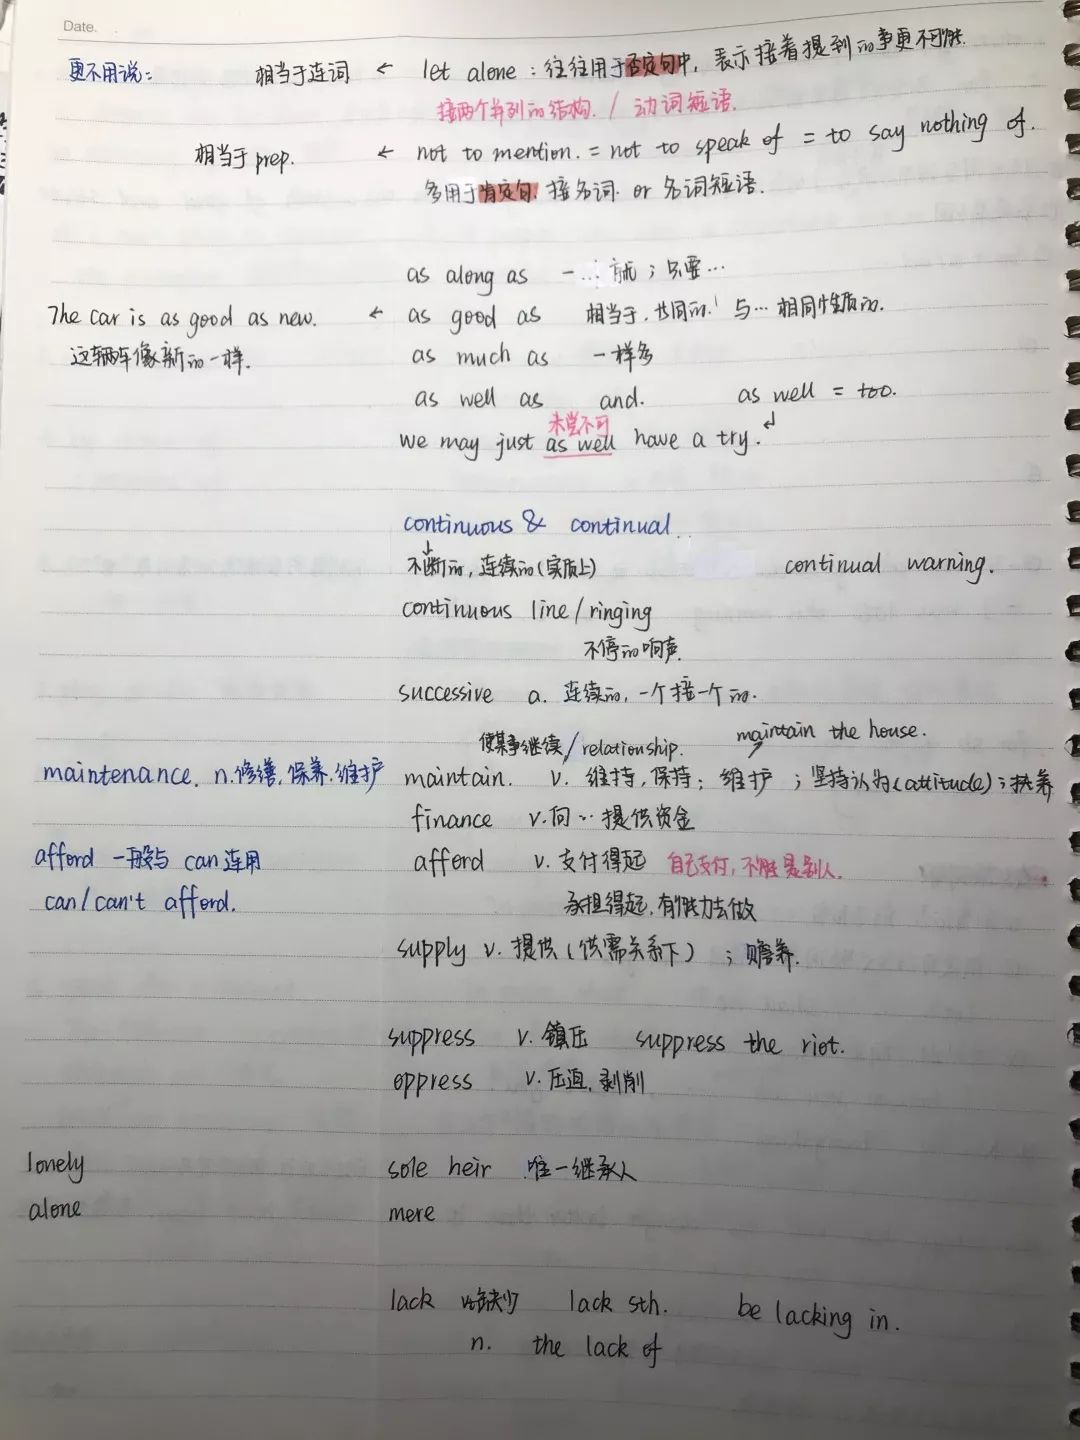 Date.
更不用说： 相当于连词 ← let alone：往往用于否定句中，表示接着提到的事更不可能.
接两个并列的结构. / 动词短语.
相当于 prep. ← not to mention. = not to speak of = to say nothing of.
多用于肯定句. 接名词. or 名词短语.
as along as 一…就；只要…
The car is as good as new. ← as good as 相当于，共同的. 与…相同性质的.
这辆车像新的一样. as much as 一样多
as well as and. as well = too.
未尝不可
we may just as well have a try.
continuous & continual
不断的，连续的(实质上) continual warning.
continuous line/ringing
不停的响声.
successive a. 连续的，一个接一个的.
使某事继续/relationship. maintain the house.
maintenance. n.修缮,保养,维护 maintain. v. 维持,保持；维护；坚持认为(attitude)；扶养
finance v.向…提供资金
afford 一般与 can 连用 afford v. 支付得起 自己支付，不能是别人.
can/can't afford. 承担得起,有能力去做
supply v. 提供(供需关系下)；赡养.
suppress v. 镇压 suppress the riot.
oppress v. 压迫,剥削
lonely sole heir 唯一继承人
alone mere
lack v.缺少 lack sth. be lacking in.
n. the lack of